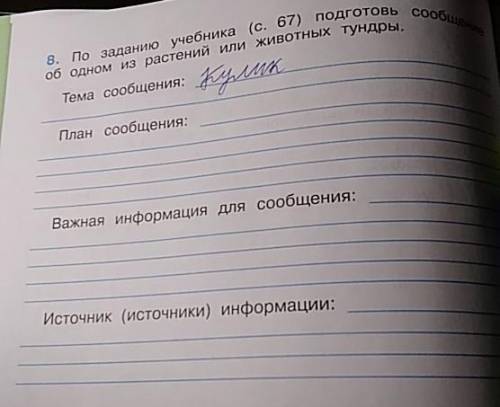 8. По заданию учебника (с. 67) подготовь сообщение
об одном из растений или животных тундры.
Тема сообщения: Кулик
План сообщения:
Важная информация для сообщения:
Источник (источники) информации: